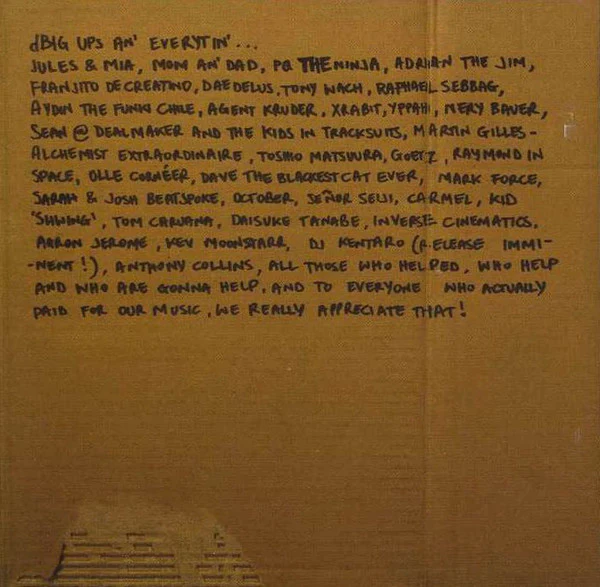 dBIG UPS AN' EVERYTIN'...
JULES & MIA, MOM AN' DAD, PQ THE NINJA, ADRIAN THE JIM,
FRANJITO DE CREATINO, DAEDELUS, TONY NACH, RAPHAEL SEBBAG,
AYDIN THE FUNKI CHILE, AGENT KRUDER, XRABIT, YPPAH, MERY BAUER,
SEAN @ DEALMAKER AND THE KIDS IN TRACKSUITS, MARTIN GILLES -
ALCHEMIST EXTRAORDINAIRE, TOSHIO MATSUURA, GOETZ, RAYMOND IN
SPACE, OLLE CORNÉER, DAVE THE BLACKEST CAT EVER, MARK FORCE,
SARAH & JOSH BEATSPOKE, OCTOBER, SEÑOR SEIJI, CARMEL, KID
'SHWING', TOM CARUANA, DAISUKE TANABE, INVERSE CINEMATICS,
AARON JEROME, KEV MOONSTARR, DJ KENTARO (RELEASE IMMI-
-NENT!), ANTHONY COLLINS, ALL THOSE WHO HELPED, WHO HELP
AND WHO ARE GONNA HELP, AND TO EVERYONE WHO ACTUALLY
PAID FOR OUR MUSIC, WE REALLY APPRECIATE THAT!